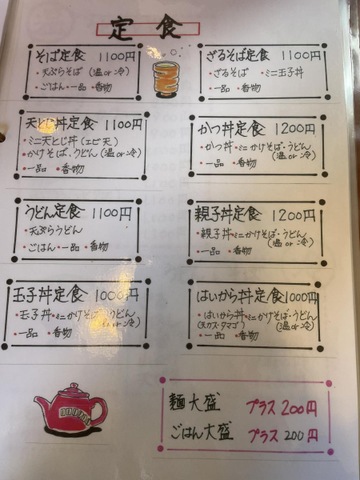 定食
そば定食 1100円
・天ぷらそば (温or冷)
・ごはん・一品・香物
ざるそば定食 1100円
・ざるそば ・ミニ玉子丼
・一品 ・香物
天とじ丼定食 1100円
・ミニ天とじ丼(エビ天)
・かけそば・うどん(温or冷)
・一品 ・香物
かつ丼定食 1200円
・かつ丼・ミニかけそば・うどん
(温or冷)
・一品 ・香物
うどん定食 1100円
・天ぷらうどん
・ごはん・一品・香物
親子丼定食 1200円
・親子丼・ミニかけそば・うどん
(温or冷)
・一品 ・香物
玉子丼定食 1000円
・玉子丼・ミニかけそば・うどん
(温or冷)
・一品 ・香物
はいから丼定食 1000円
・はいから丼・ミニかけそば・うどん
(天カス・タマゴ) (温or冷)
・一品 ・香物
麺大盛 プラス200円
ごはん大盛 プラス200円